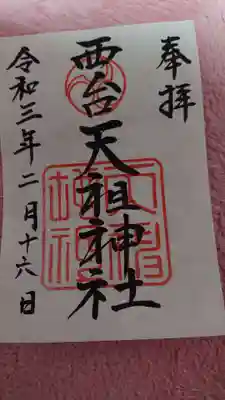 奉拝
西台天祖神社
令和三年二月十六日